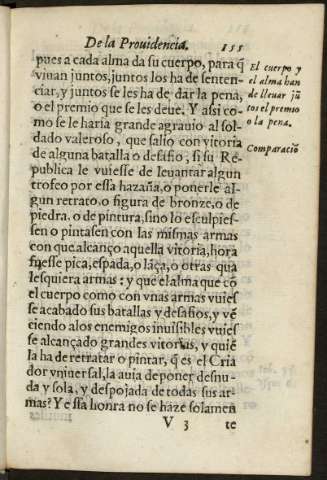 De la Prouidencia. 155
pues a cada alma da su cuerpo, para q̃
viuan juntos, juntos los ha de senten-
ciar, y juntos se les ha de dar la pena,
o el premio que se les deue. Y assi co-
mo se le haria grande agrauio al sol-
dado valeroso, que salio con vitoria
de alguna batalla o desafio; si su Re-
publica le vuiesse de leuantar algun
trofeo por essa hazaña, o ponerle al-
gun retrato, o figura de bronze, o de
piedra, o de pintura, sino lo esculpies-
sen o pintasen con las mismas armas
con que alcanço aquella vitoria, hora
fuesse pica, espada, o lãça, o otras qua
lesquiera armas: y que el alma que cõ
el cuerpo como con vnas armas vuies
se acabado sus batallas y desafios, y vẽ
ciendo a los enemigos inuisibles vuies
se alcançado grandes vitorias, y quiẽ
la ha de retratar o pintar, q̃ es el Cria
dor vniuersal, la auia de poner desnu-
da y sola, y despojada de todas sus ar-
mas? Y essa honra no se haze solamen
V 3 te
El cuerpo y
el alma han
de lleuar jũ
tos el premio
o la pena.
Comparaciõ